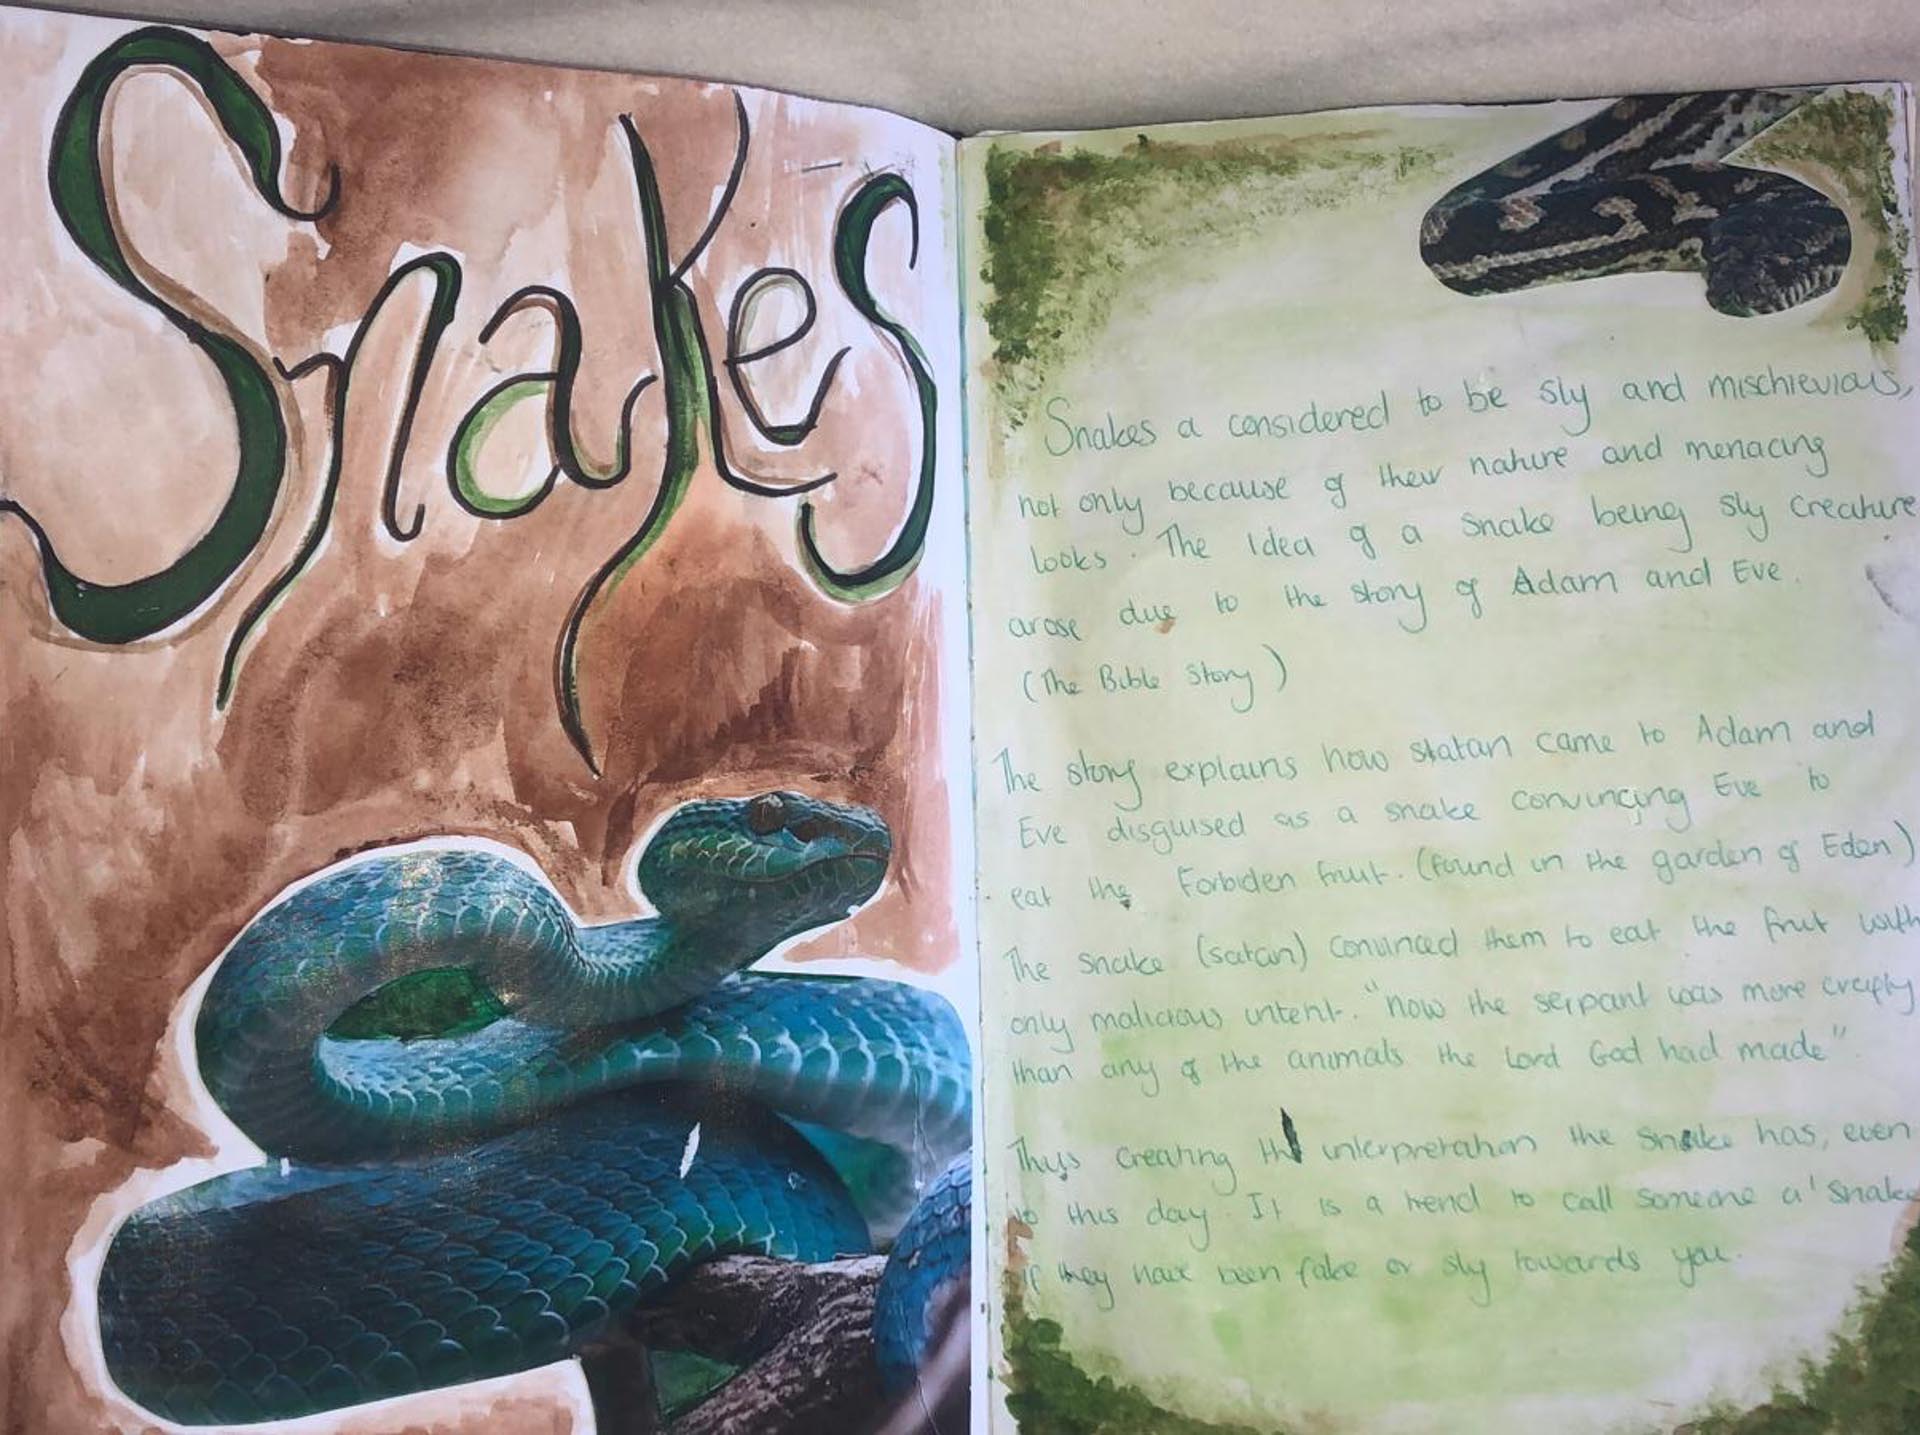 Snakes
Snakes a considered to be sly and mischievious,
not only because of their nature and menacing
looks. The idea of a snake being sly creature
arose due to the story of Adam and Eve.
(The Bible Story)
The story explains how satan came to Adam and
Eve disguised as a snake convincing Eve to
eat the Forbiden fruit. (found in the garden of Eden)
The snake (satan) convinced them to eat the fruit with
only malicious intent. "now the serpant was more
than any of the animals the Lord God had made".
Thus creating the interpretation the snake has, even
to this day. It is a trend to call someone a 'snake
if they have been fake or sly towards you.